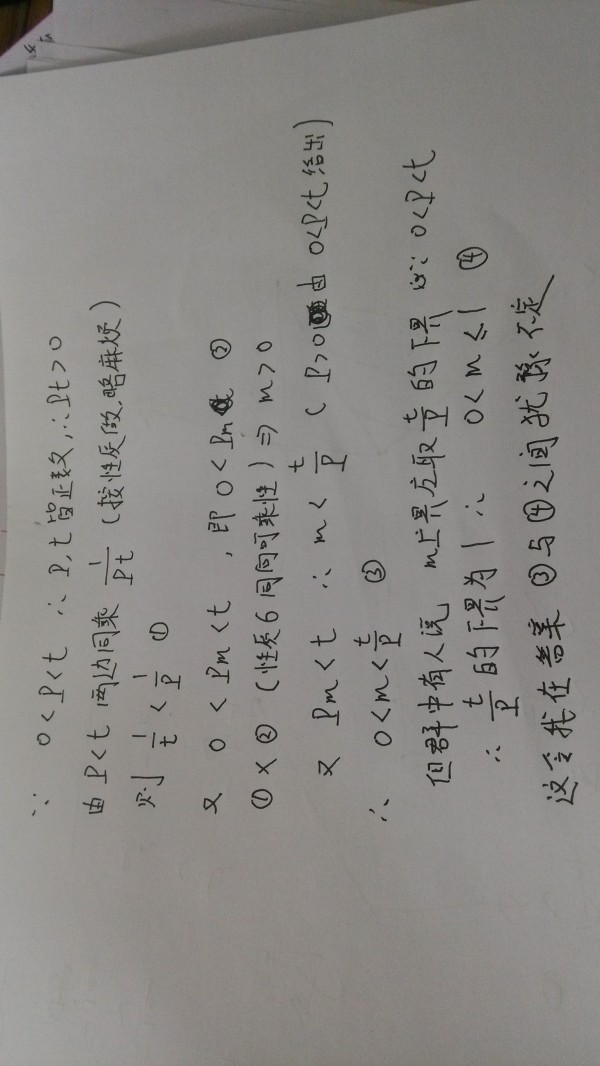 ∵ 0<P<t ∴P,t皆正数,∴Pt>0
由P<t 两边同乘 1/Pt (按性质做,略麻烦)
则 1/t < 1/P ①
又 0<Pm<t,即0<Pm ②
①×②(性质6同向可乘性)⇒ m>0
又 Pm<t ∴ m< t/P ( P>0由 0<P<t给出)
∴ 0<m< t/P ③
但群中有人说 m上界应取 t/P 的下界 ∵0<P<t
∴ t/P 的下界为1 ∴ 0<m≤1 ④
这令我在答案③与④之间犹豫不定